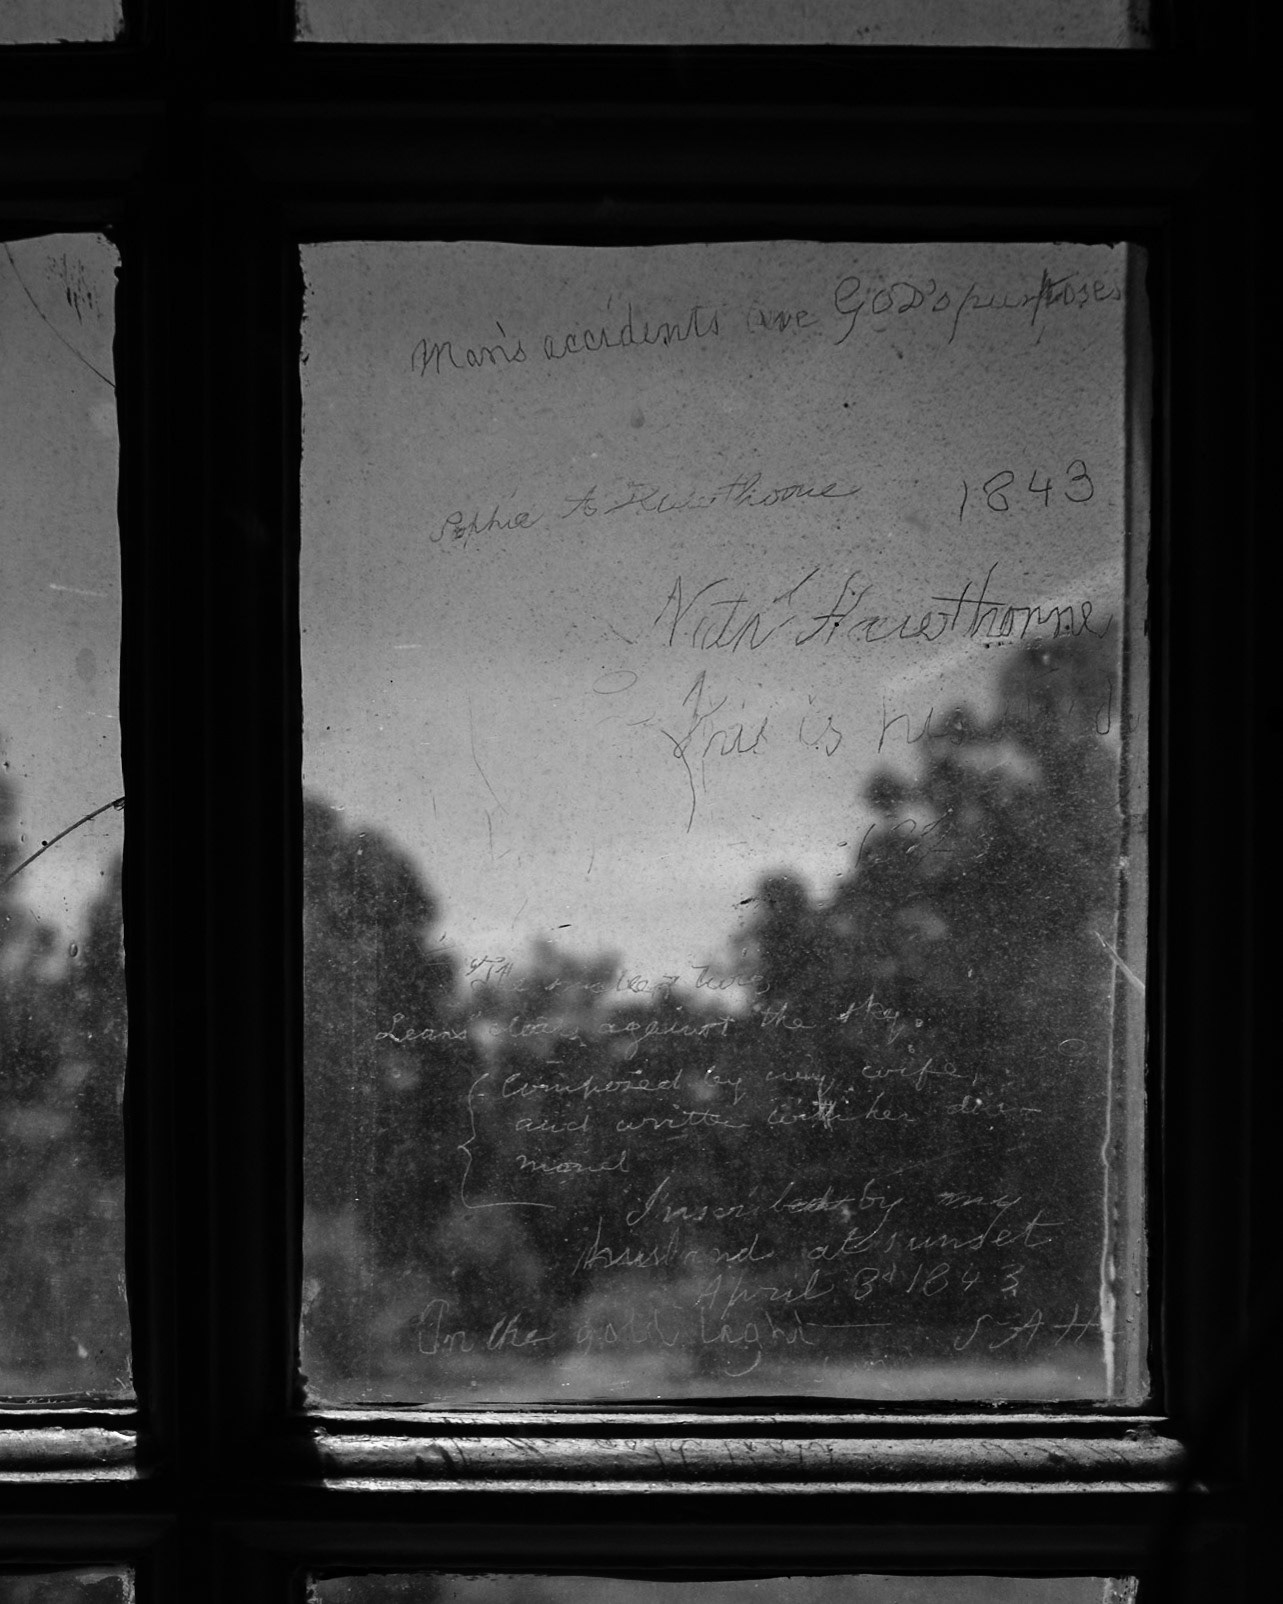 Man's accidents are GOD's purposes
Sophia A Hawthorne 1843
Nath^l Hawthorne
This is his
1843
The smallest twig
Leans clear against the sky.
Composed by my wife,
and written with her dia-
mond
Inscribed by my
husband at sunset
April 3^d 1843
In the gold light SAH